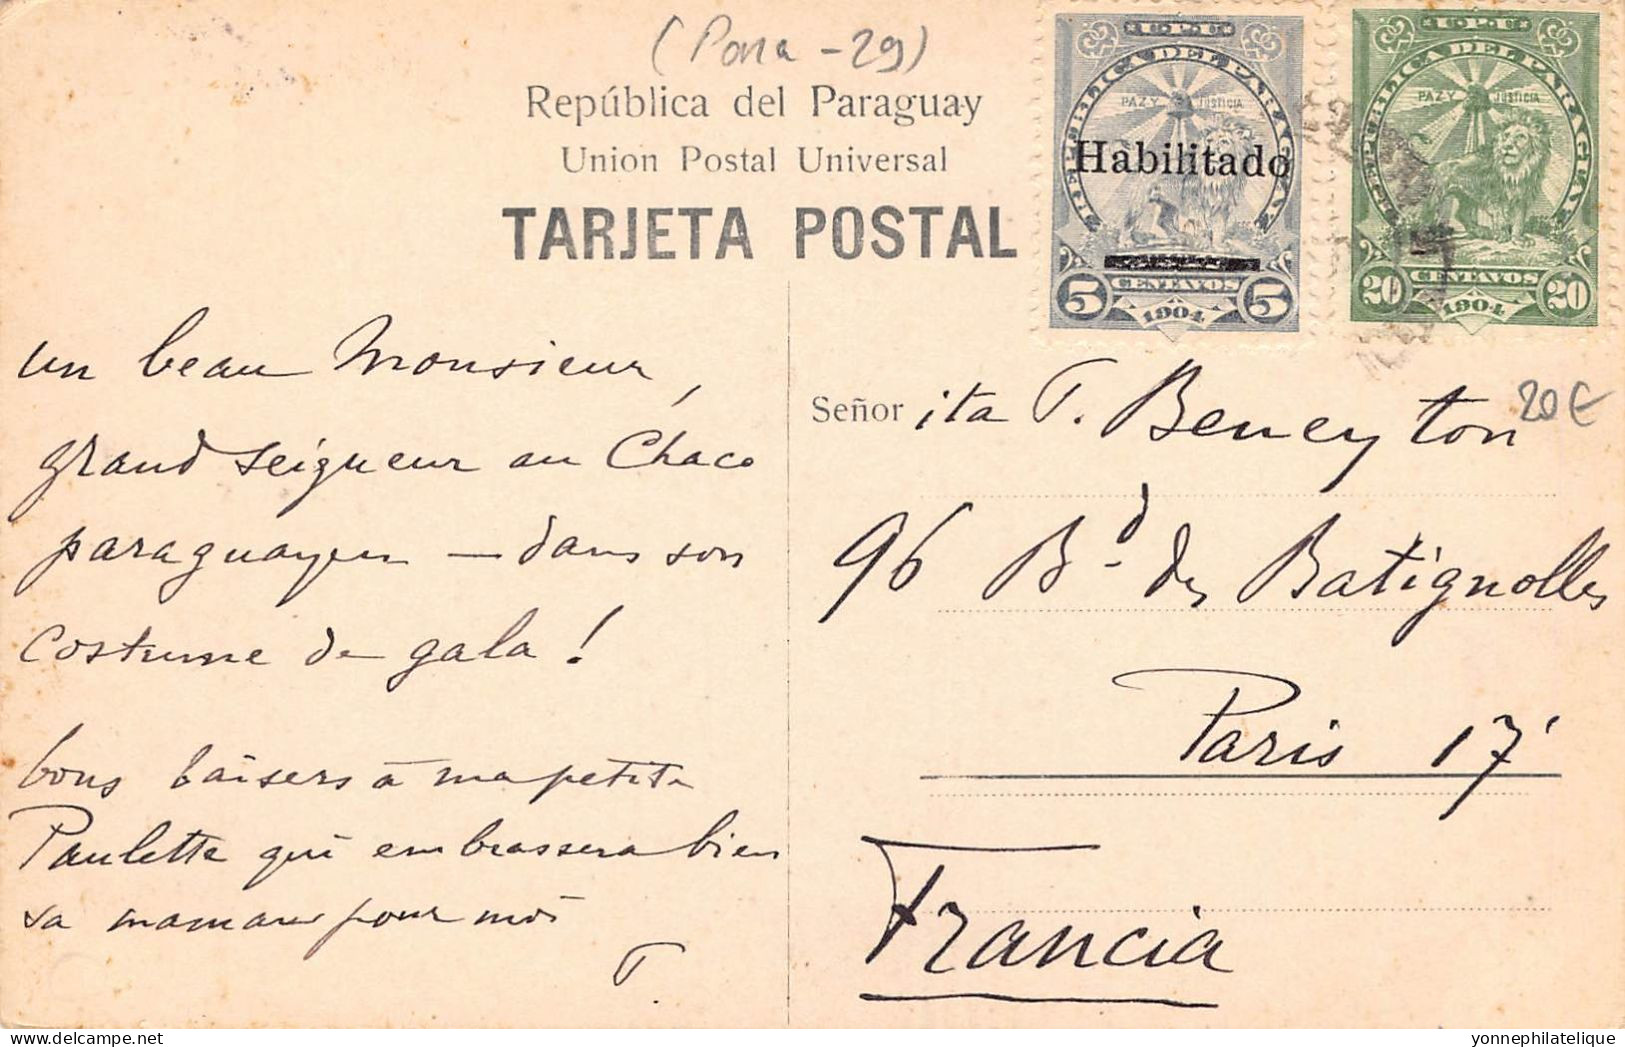 (Para - 29)
República del Paraguay
Union Postal Universal
TARJETA POSTAL
U.P.U
REPUBLICA DEL PARAGUAY
PAZ Y JUSTICIA
Habilitado
5 CENTAVOS 5
1904
U.P.U
REPUBLICA DEL PARAGUAY
PAZ Y JUSTICIA
20 CENTAVOS 20
1904
un beau Monsieur,
grand seigneur au Chaco
paraguayen — dans son
costume de gala !
bons baisers à ma petite
Paulette qui embrassera bien
sa maman pour moi
T.
Señor ita T. Beneyton
20€
96 Bd. des Batignolles
Paris 17'
Francia
yonnephilatelique